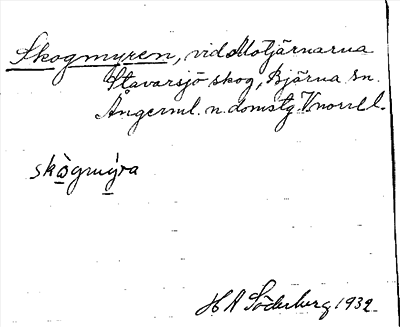 Skogmyren, vid Motjärnarna
Stavarsjö skog, Björna sn.
Ångerml. n. domstg. V.norrl l.
skògmýra
H A Söderberg 1932.